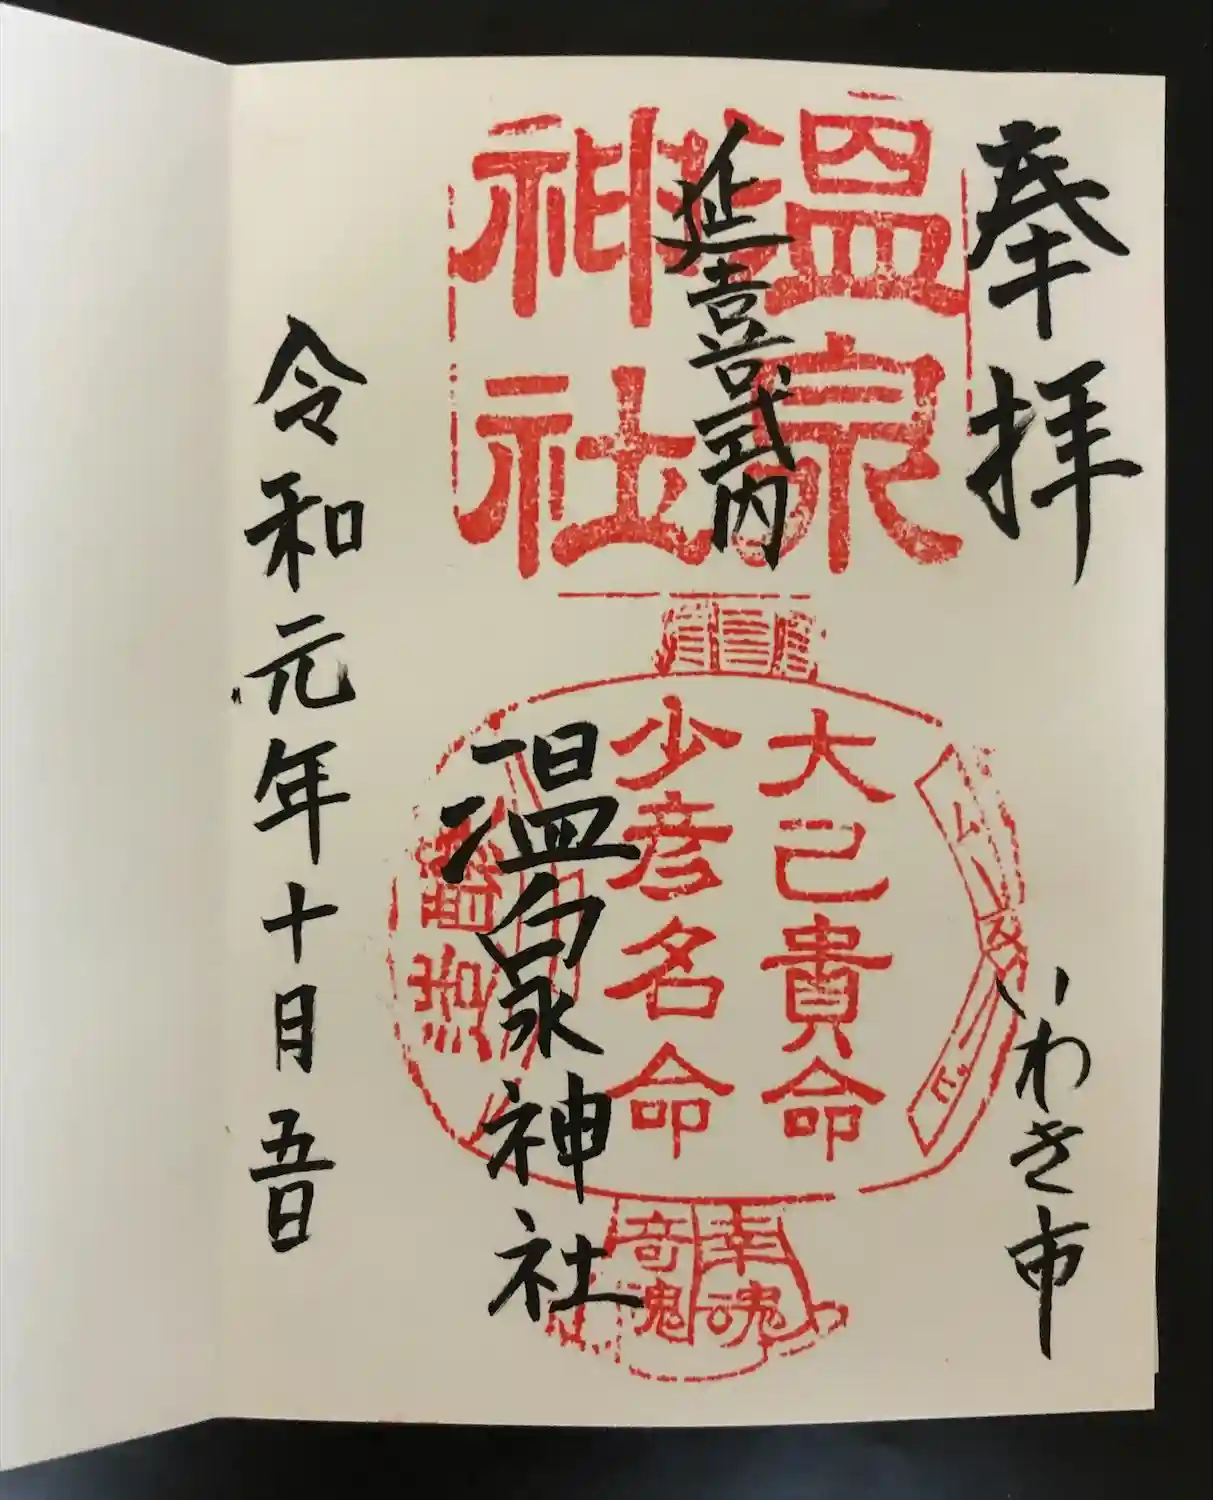 奉拝
いわき市
延喜式内
温泉神社
令和元年十月五日
温泉
神社
大己貴命
少彦名命
幸魂
奇魂